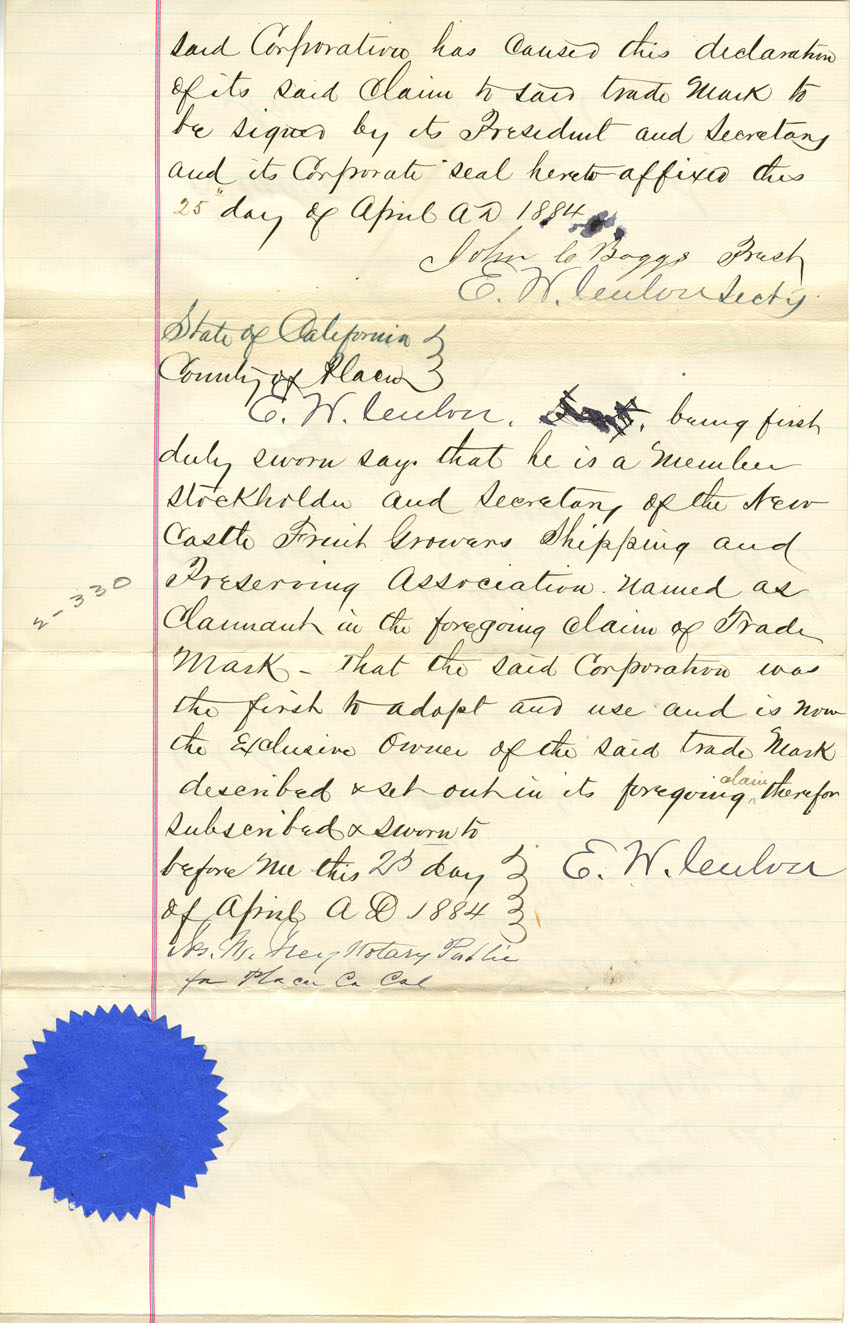 said Corporation has caused this declaration
of its said Claim to said trade Mark to
be signed by its President and Secretary
and its Corporate seal hereto affixed this
25" day of April AD 1884
John C Boggs Prest
E. W. Secty
State of California }
County of Placer }
E. W. being first
duly sworn says that he is a Member
stockholder and Secretary of the New
Castle Fruit Growers Shipping and
Preserving Association. Named as
Claimant in the foregoing Claim of Trade
Mark – That the said Corporation was
the first to adopt and use and is now
the Exclusive Owner of the said trade Mark
described & set out in its foregoing claim therefor
subscribed & sworn to
before Me this 25 day
of April A D 1884
E. W.
Notary Public
for Placer Co Cal
2-330